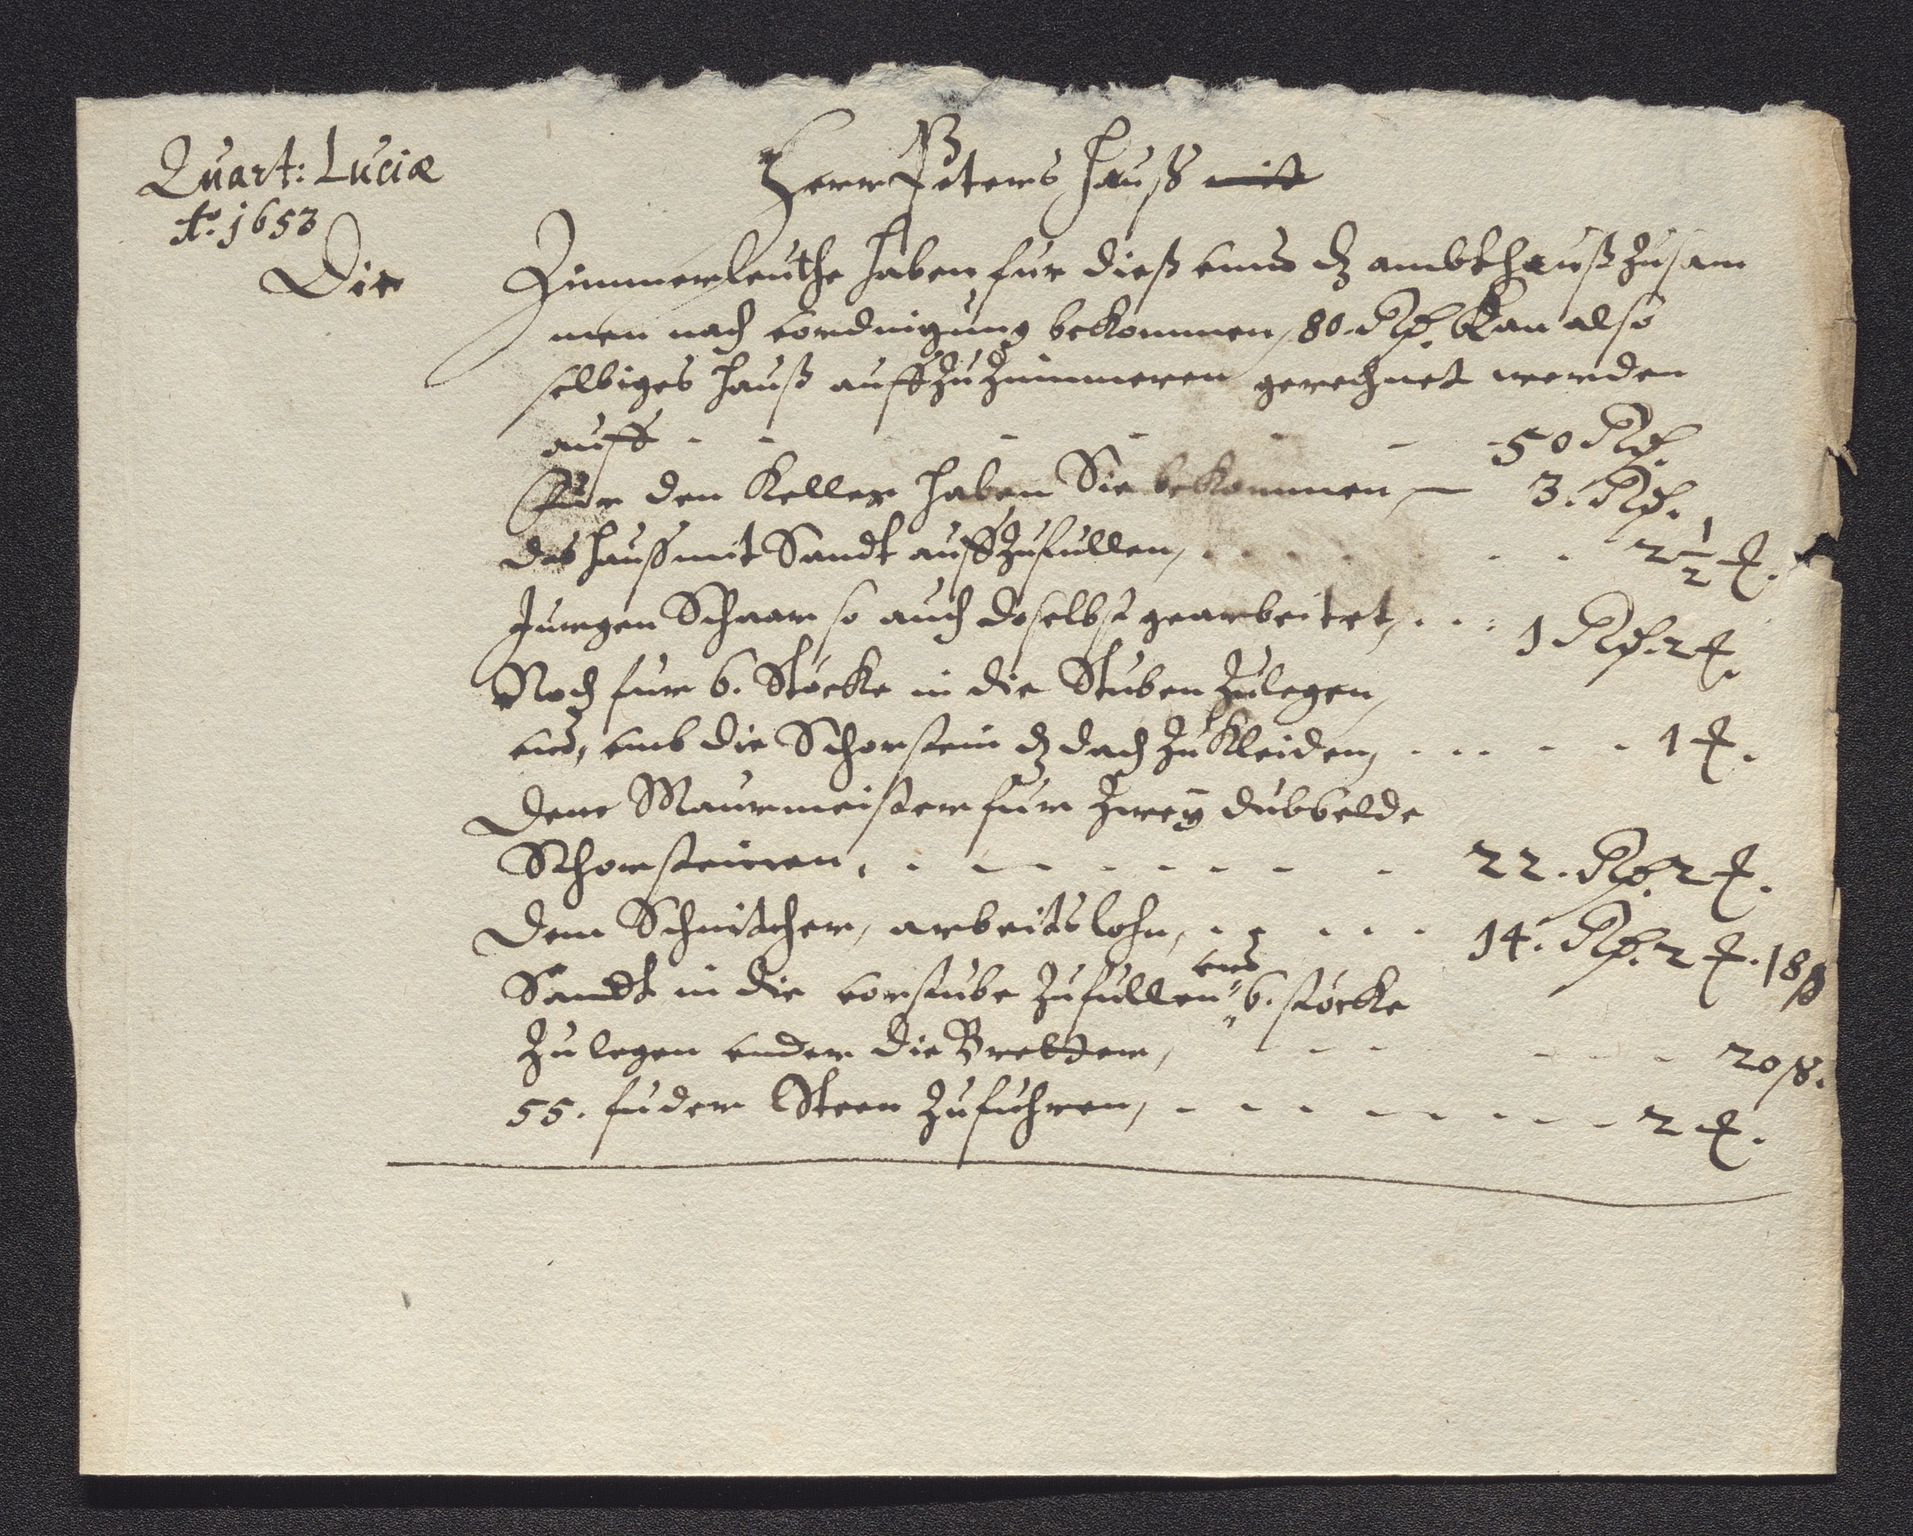 Quart: Luciæ
Ao. 1653
Herr Peters Hauß mit
Die Zimmerleuthe haben fur dieß unnd dz ambthauß zusam
men nach vordingung bekommen, 80. Rth. Kan also
selbiges hauß auffzuZimmeren gerechnet werden
auff - - - - - - 50 Rth.
Fur den Keller haben Sie bekommen, - 3. Rth.
Das hauß mit Sandt auffzufullen, - - - - - - 2 1/2 ₰.
Jurgen Schaar so auch doselbst gearbeitet, - - - 1 Rth. 2 ₰.
Noch fur 6. Stöcke in die Stuben Zulegen,
und, umb die Schorstein dz dach zu Kleiden, - - - - - 1 ₰.
Dem Maurmeister fur Zweÿ dubbelde
Schorsteinen, - - - - - - - - 22. Rth. 2 ₰.
Dem Schnitcher, arbeitslohn, - - - - - 14. Rth. 2 ₰. 18 ß
Sandt in die vorstube Zufullen und 6. stöcke
Zulegen under die Bretter, - - - - - - 20 ß.
55. fuder Steen Zufuhren, - - - - - - - 2 ₰.